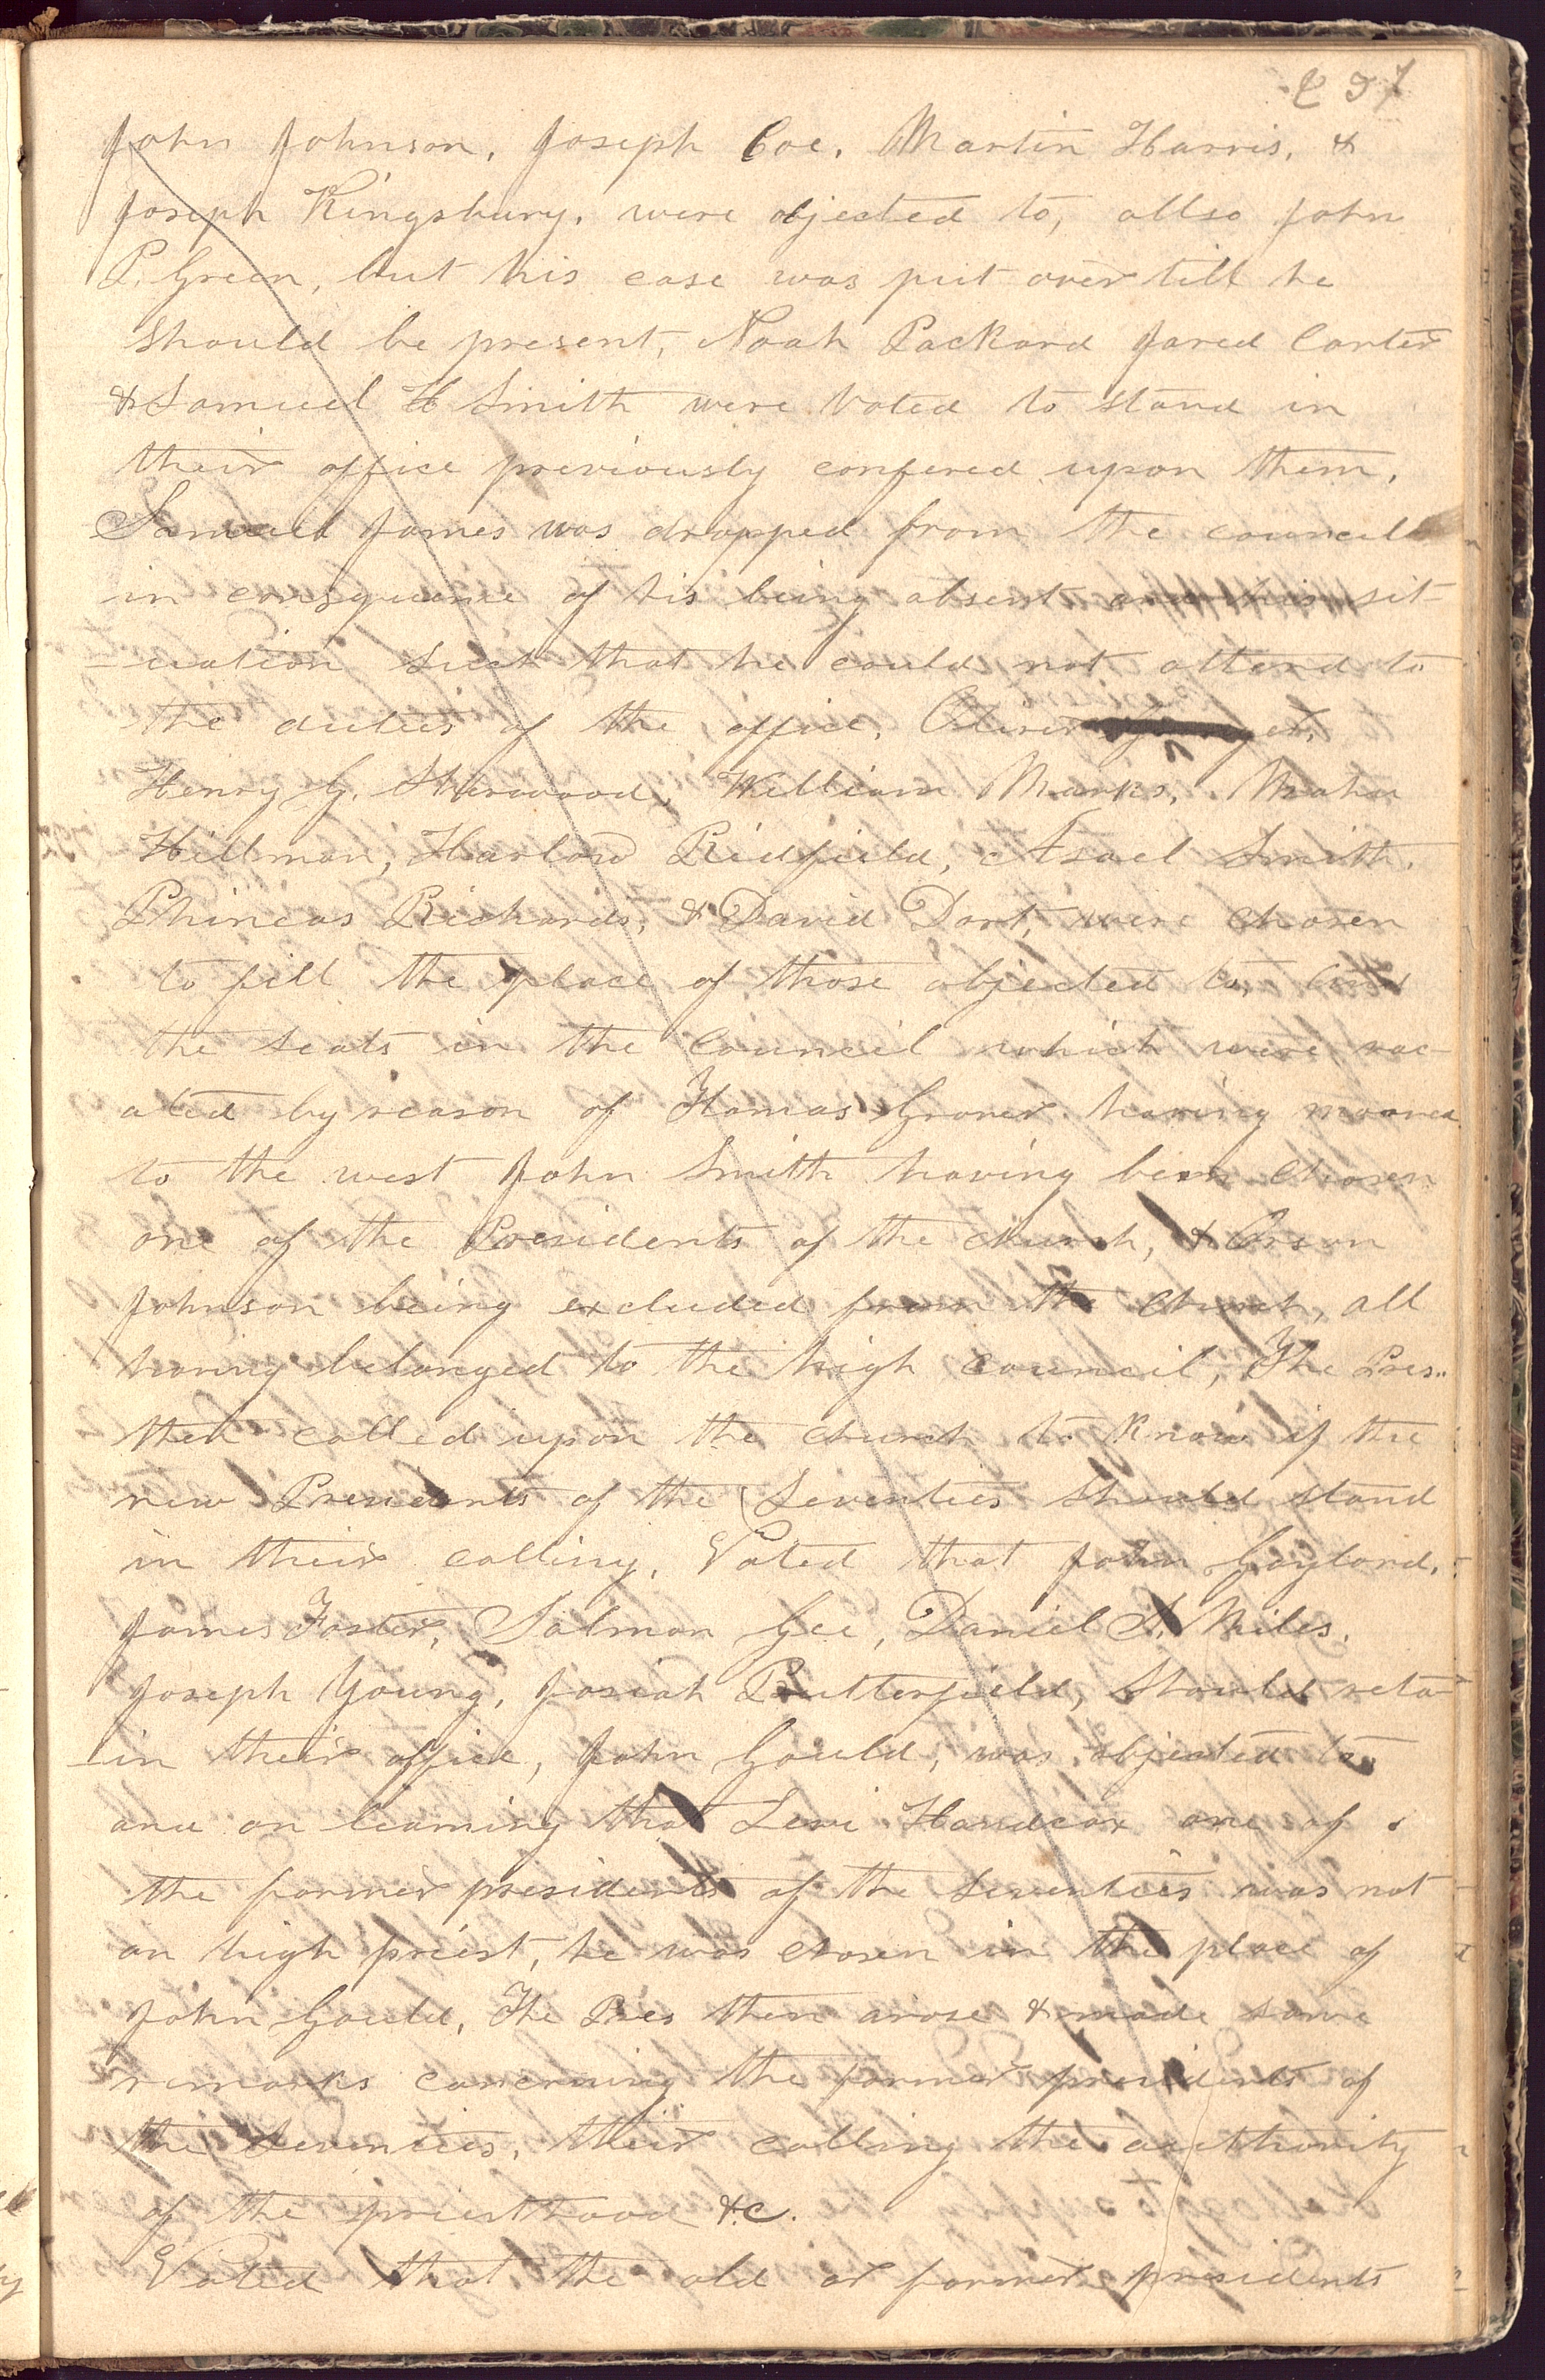 237
John Johnson, Joseph Coe, Martin Harris, &
Joseph Kingsbury, were objected to, allso John
P. Green, but his case was put over till he
should be present, Noah Packard Jared Carter
& Samuel H Smith were voted to stand in
their office previously confered upon them,
Samuel James was dropped from the council
in consequence of his being absent and his sit-
-uation such that he could not attend to
the duties of the office, Oliver
Henry G. Sherwood, William Marks, Mahu
Hillman, Harlow Ridfield, Asael Smith,
Phineas Richards, & David Dort, were chosen
to fill the place of those objected to, and
the seats in the council which were vac-
ated by reason of Thomas Grover having mooved
to the west John Smith having been chosen
one of the Presidents of the church, & Orson
Johnson being excluded from the church, all
having belonged to the high council, The Pres..
then called upon the church to know if the
new Presidents of the Seventies should stand
in their calling, Voted that John Gaylord,
James Foster, Salmon Gee, Daniel S. Miles,
Joseph Young, Josiah Butterfield, should reta-
-in their office, John Gould, was objected to
and on learning that Levi Handcox one of
the former presidents of the Seventies was not
an high priest, he was chosen in the place of
John Gould, The Pres then arose & made some
remarks concerning the former presidents of
the Seventies, their calling the authority
of the priesthood &c.
Voted that the old or former presidents